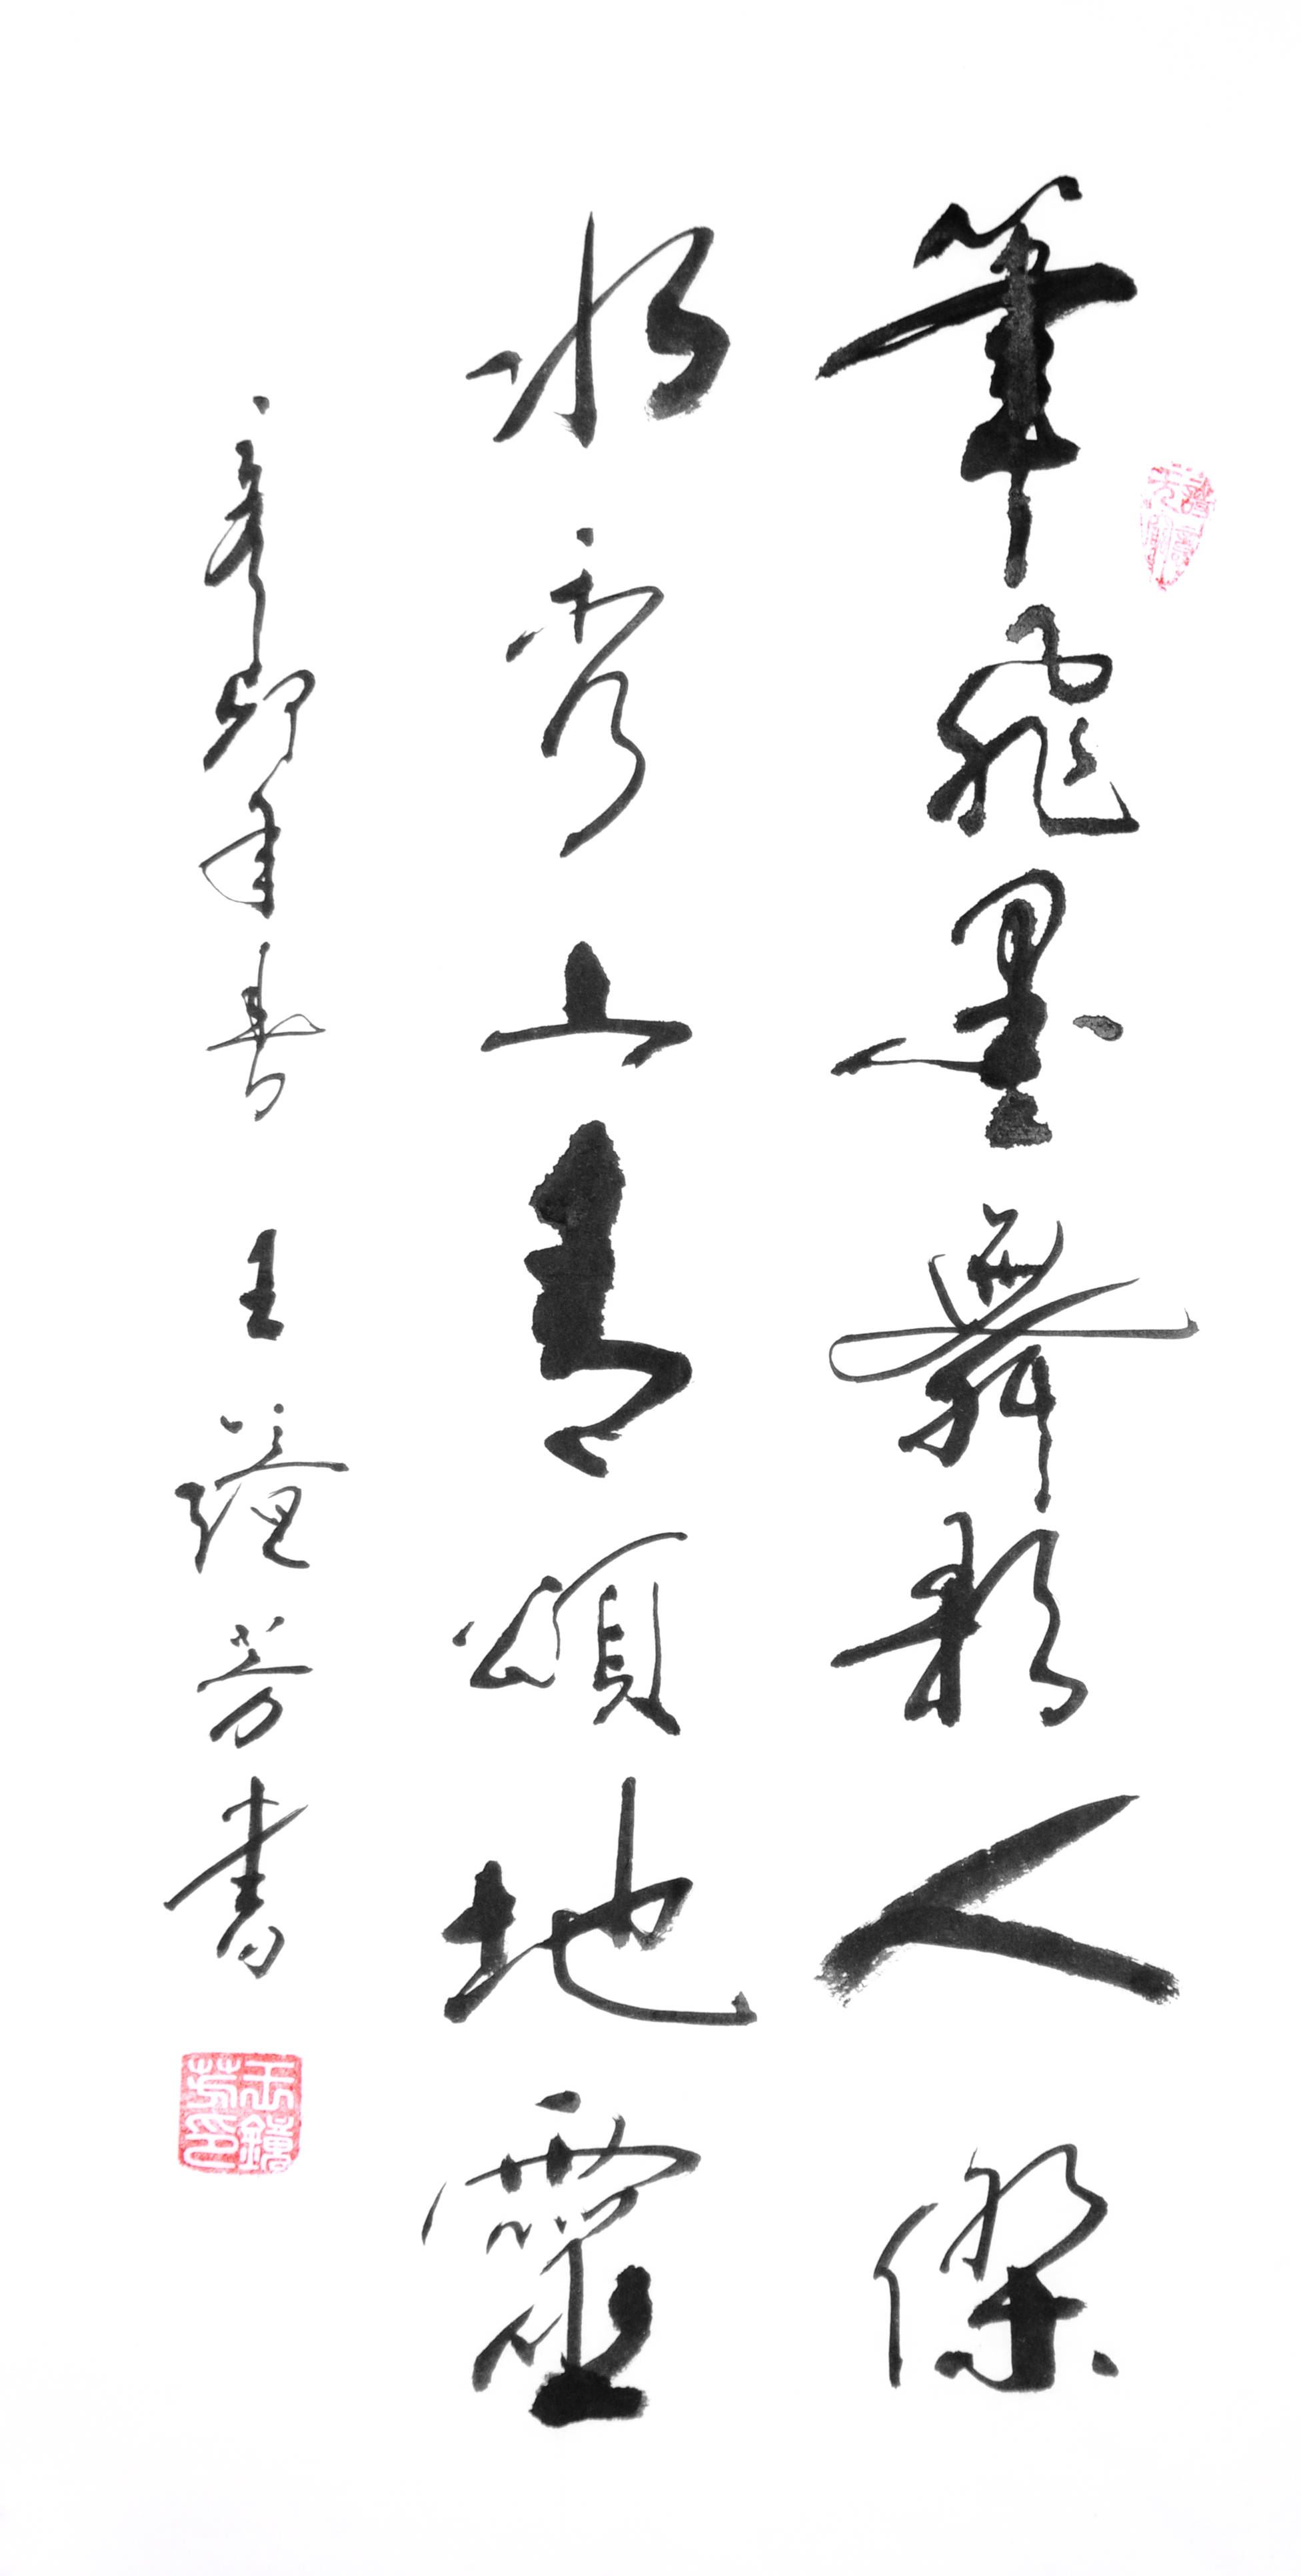 筆飛墨舞彰人傑
水秀山青頌地靈
辛卯年春 王芳書
王芳印